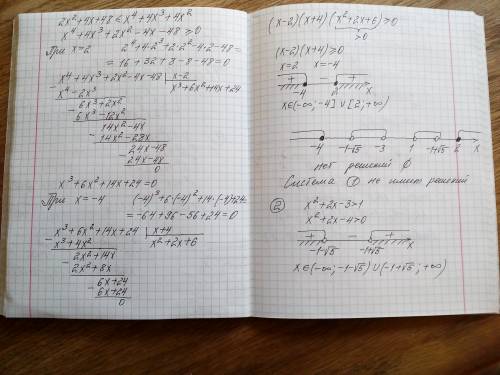 2x²+4x+48 ≤ x⁴+4x³+4x²
x⁴+4x³+2x²-4x-48 ≥ 0
При x=2 2⁴+4·2³+2·2²-4·2-48=
= 16+32+8-8-48=0
x⁴+4x³+2x²-4x-48 | x-2
x⁴-2x³ x³+6x²+14x+24
6x³+2x²
6x³-12x²
14x²-4x
14x²-28x
24x-48
24x-48
0
x³+6x²+14x+24=0
При x=-4 (-4)³+6·(-4)²+14·(-4)+24=
= -64+96-56+24=0
x³+6x²+14x+24 | x+4
x³+4x² x²+2x+6
2x²+14x
2x²+8x
6x+24
6x+24
0
(x-2)(x+4)(x²+2x+6) ≥ 0
>0
(x-2)(x+4) ≥ 0
x=2 x=-4
+ - +
-4 2 x
x∈(-∞; -4] ∪ [2; +∞)
-4 -1-√5 -3 1 -1+√5 2 x
нет решений ∅
Система ① не имеет решений
② x²+2x-3>1
x²+2x-4>0
+ - +
-1-√5 -1+√5 x
x∈(-∞; -1-√5) ∪ (-1+√5; +∞)